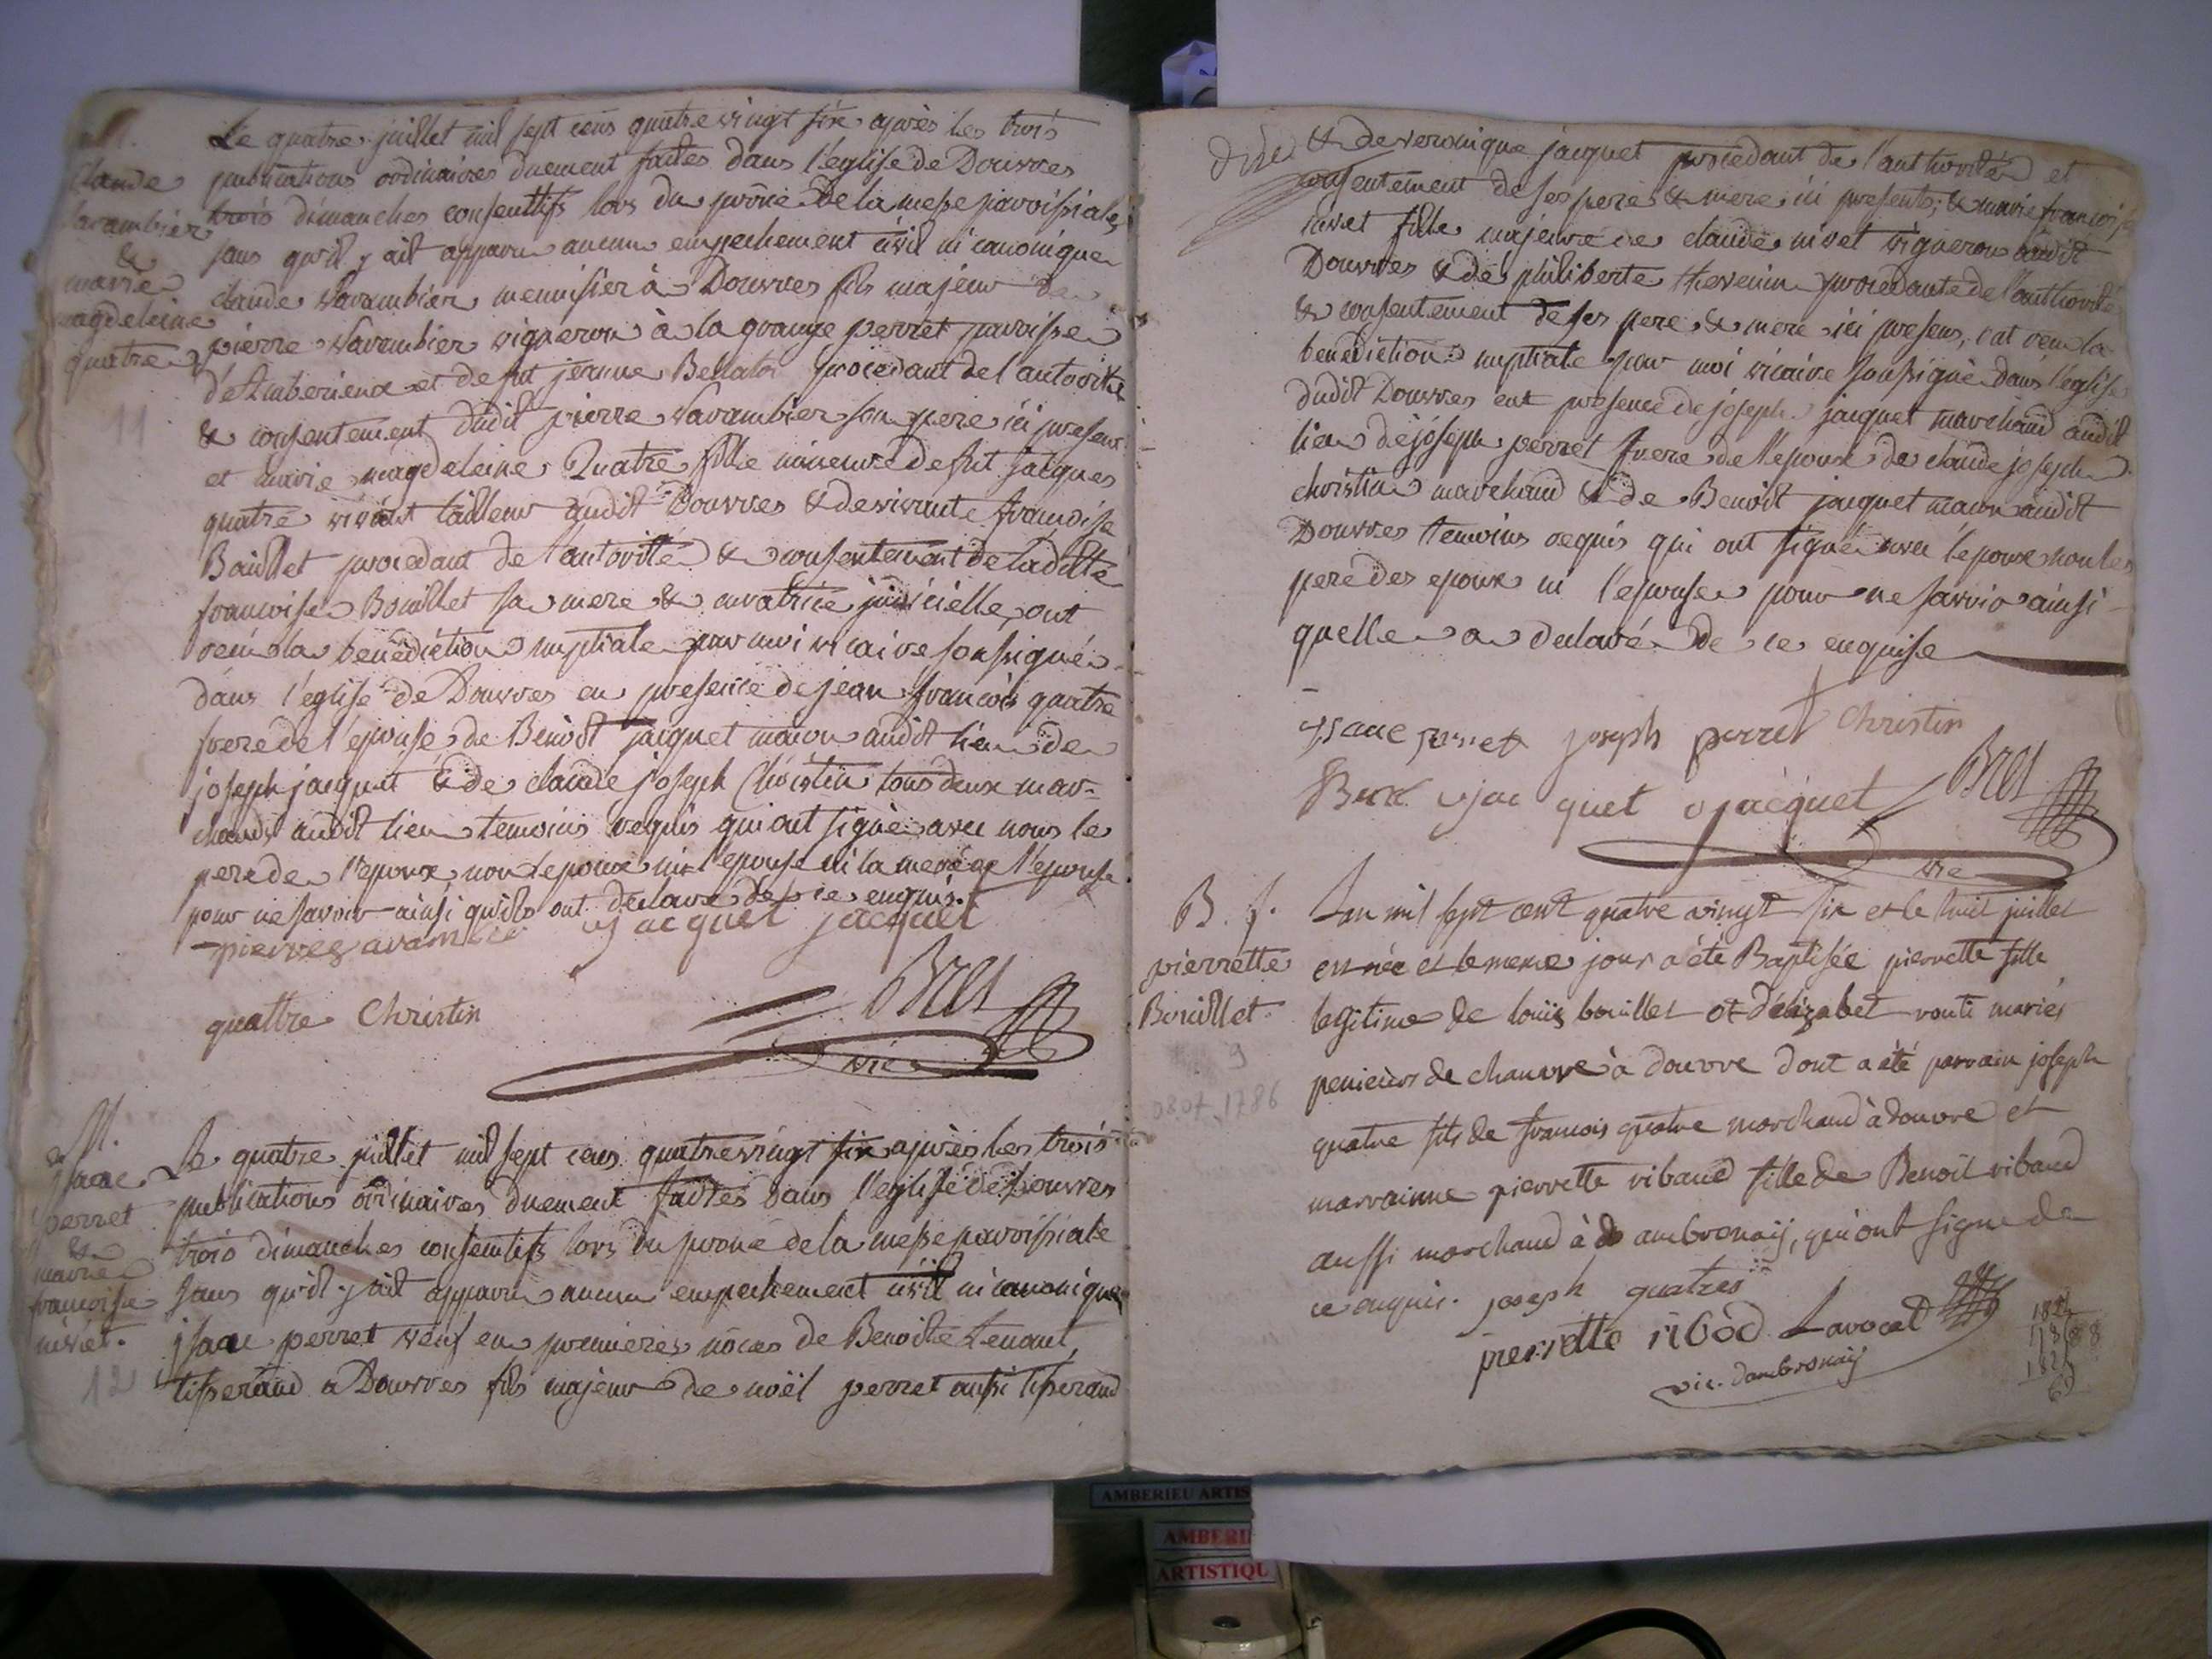 M.
Claude
Varambier
&
marie
magdeleine
quatre
11
Le quatre juillet mil sept cens quatre vingt six après les trois
publications ordinaires duement faites dans l'eglise de Douvres
trois dimanches consecutifs lors du prône de la messe paroissiale
sans qu'il y ait apparu aucun empechement civil ni canonique
claude Varambier menuisier à Douvres fils majeur de
pierre Varambier vigneron à la grange perret paroisse
d'Amberieux et de fut jeanne Bellaton procedant de l'autorité
& consentement dudit pierre Varambier son pere ici present
et marie magdeleine Quatre fille mineure de fut jacques
quatre vivant tailleur audit Douvres & de vivante françoise
Bouillet procedant de l'autorité & consentement de ladite
françoise Bouillet sa mere & curatrice judicielle, ont
reçu la benediction nuptiale par moi vicaire soussigné
dans l'eglise de Douvres en presence de jean françois quatre
frere de l'épouse, de Benoit jacquet macon audit lieu de
joseph jacquet & de claude joseph Christin tous deux mar-
chands audit lieu temoins requis qui ont signé avec nous le
pere de l'epoux non l'epoux ni l'epouse ni la mere de l'epouse
pour ne savoir ainsi qu'ils ont declaré de ce enquis.
pierre varambier jacquet jacquet
quattre Christin Bret
vic
M.
isaac
perret
&
marie
françoise
nivet.
12
Le quatre juillet mil sept cens quatre vingt six après les trois
publications ordinaires duement faites dans l'eglise de Douvres
trois dimanches consecutifs lors du prone de la messe paroissiale
sans qu'il y ait apparu aucun empechement civil ni canonique
isaac perret veuf en premieres nôces de Benoite tenant,
tisserand a Douvres fils majeur de noël perret aussi tisserand
& de veronique jacquet procedant de l'authorité et
consentement de ses pere & mere ici presents; & marie françoise
nivet fille majeure de claude nivet vigneron audit
Douvres & de philiberte thevenin procedante de l'authorité
& consentement de ses pere & mere ici presens, ont reçu la
benediction nuptiale par moi vicaire soussigné dans l'eglise
dudit Douvres en presence de joseph jacquet marchand audit
lieu de joseph perret frere de l'epoux de claude joseph
christin marchand & de Benoit jacquet macon audit
Douvres temoins requis qui ont signé avec l'epoux non les
pere des epoux ni l'epouse pour ne savoir ainsi
quelle a declaré de ce enquise
isaac perret joseph perret Christin
jacquet jacquet Bret
vic
B. f.
pierrette
Bouillet
9
08.07.1786
L'an mil sept cent quatre vingt six et le huit juillet
est née et le meme jour a été Baptisée pierrette fille
legitime de louis bouillet et d'elizabet mariés
penieurs de chanvre à douvre dont a été parrain joseph
quatre fils de francois quatre marchand à douvre et
marrainne pierrette ribaud fille de Benoit ribaud
aussi marchand à ambronay, qui ont signé de
ce enquis. joseph quatres
pierrette ribod Lavocat
vic. dambronay